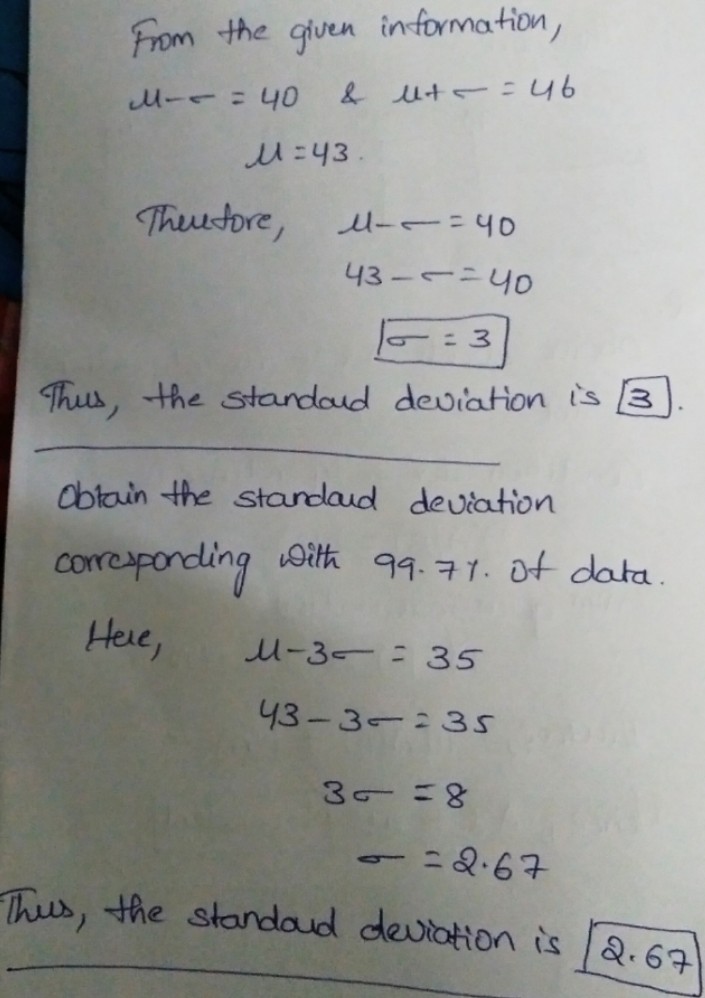 From the given information,
μ-σ = 40 & μ+σ = 46
μ = 43.
Therefore, μ-σ = 40
43-σ = 40
σ = 3
Thus, the standard deviation is 3.
Obtain the standard deviation
corresponding with 99.7%. of data.
Here, μ-3σ = 35
43-3σ = 35
3σ = 8
σ = 2.67
Thus, the standard deviation is 2.67